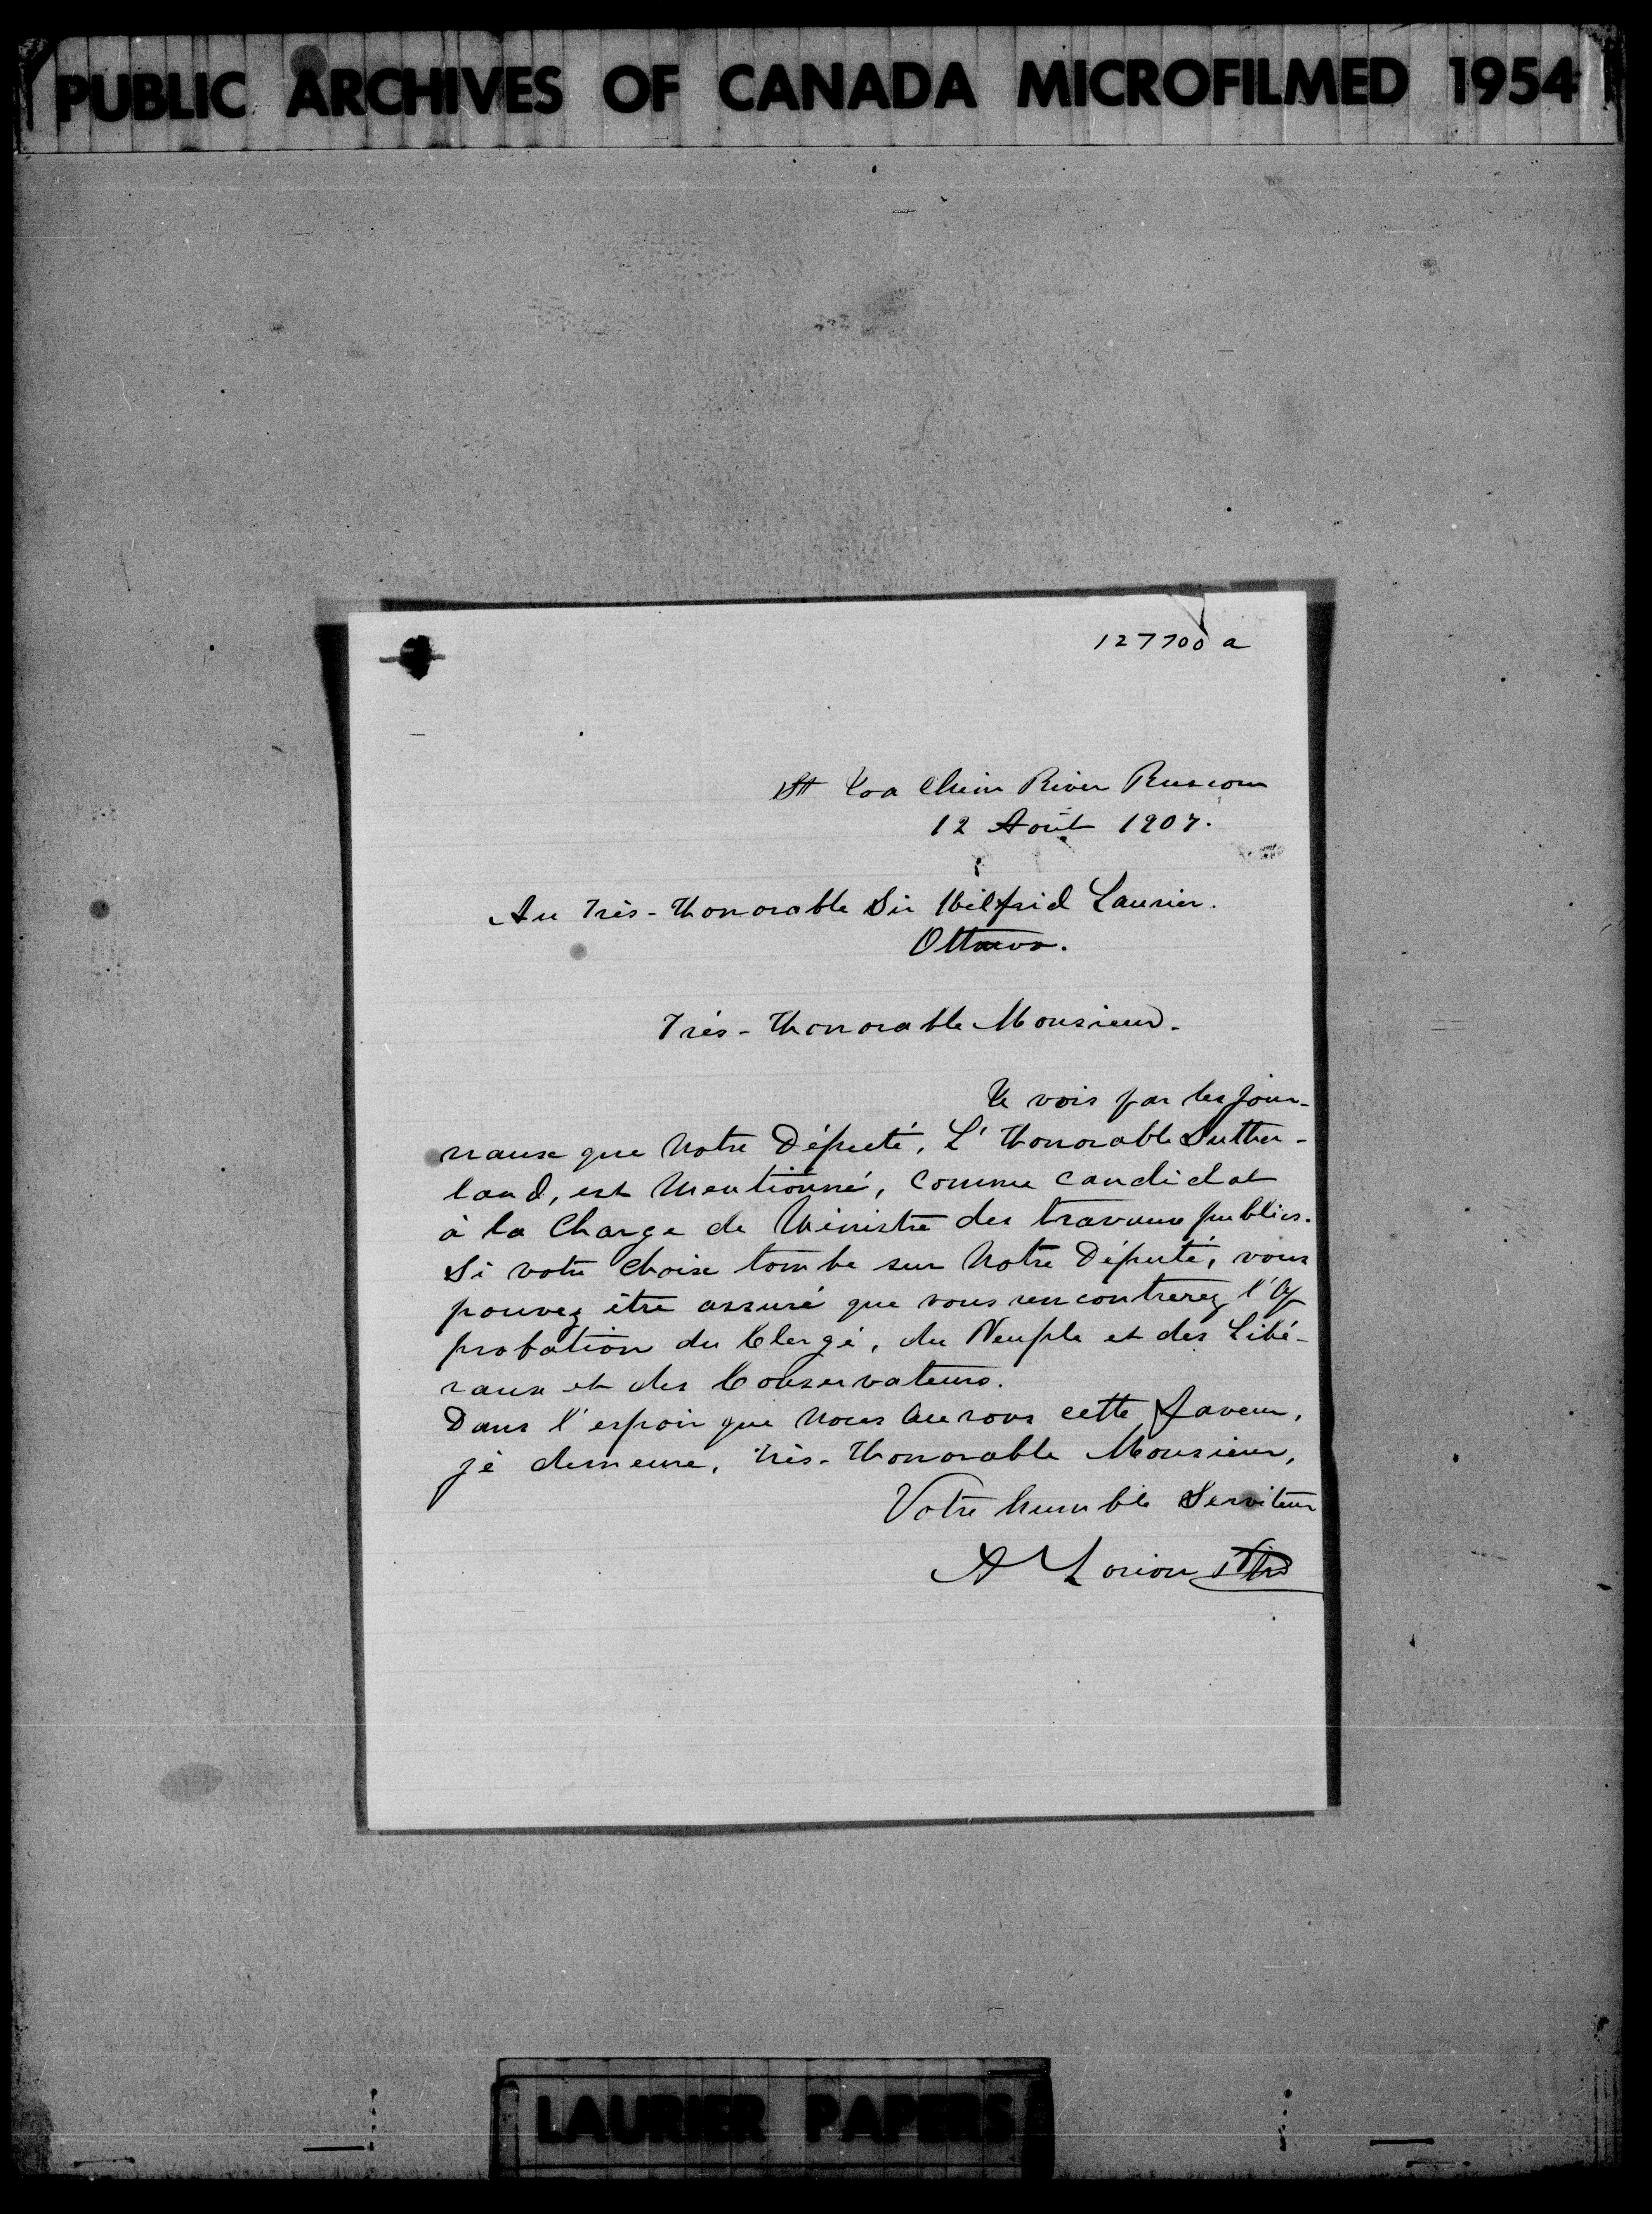 PUBLIC ARCHIVES OF CANADA MICROFILMED 1954
127700 a
St Joa Chim River Ruscom
12 Août 1907.
Au Très-Honorable Sir Wilfrid Laurier.
Ottawa.
Très-Honorable Monsieur.
Je vois par les jour-
naux que Notre Député, L'Honorable Suther-
land, est Mentionné, comme candidat
à la Charge de Ministre des travaux publics.
Si votre choix tombe sur Notre Député, vous
pouvez être assuré que vous rencontrerez l'Ap
probation du Clergé, du Peuple et des Libé-
raux et des Conservateurs.
Dans l'espoir que Nous Aurons cette faveur,
je demeure, Très-Honorable Monsieur,
Votre humble Serviteur
A Lorion Ptre
LAURIER PAPERS